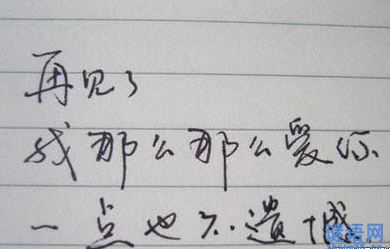 再见了
我那么那么爱你
一点也不遗憾
谜语网